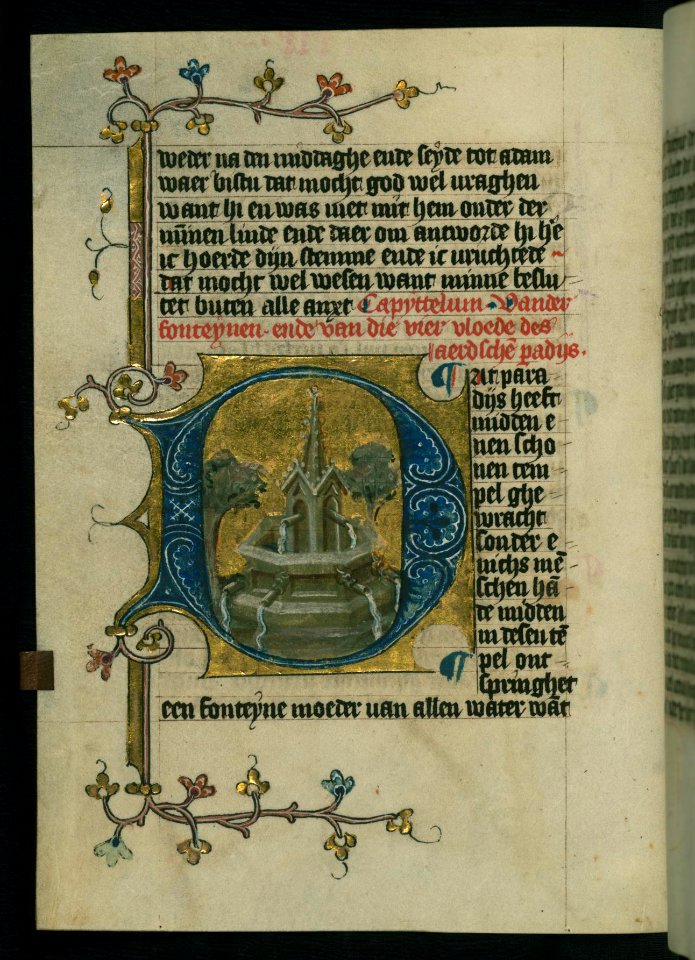 weder na den middaghe ende seyde tot adam
waer bistu dat mocht god wel uraghen
want hi en was niet mit hem onder der
mīnen linde ende daer om antworde hi hē
ic hoerde dijn stemme ende ic uruchtede
dat mocht wel wesen want minne beslu
tet buten alle anxt Capyttelum Vander
fonteynen ende van die vier vloede des
aerdschē padijs.
¶ Dat para
dijs heeft
midden e
nen scho
nen tem
pel ghe
wracht
sonder e
nichs mē
schen hā
de midden
in desen tē
¶ pel ont
springhet
een fonteyne moeder van allen water wāt